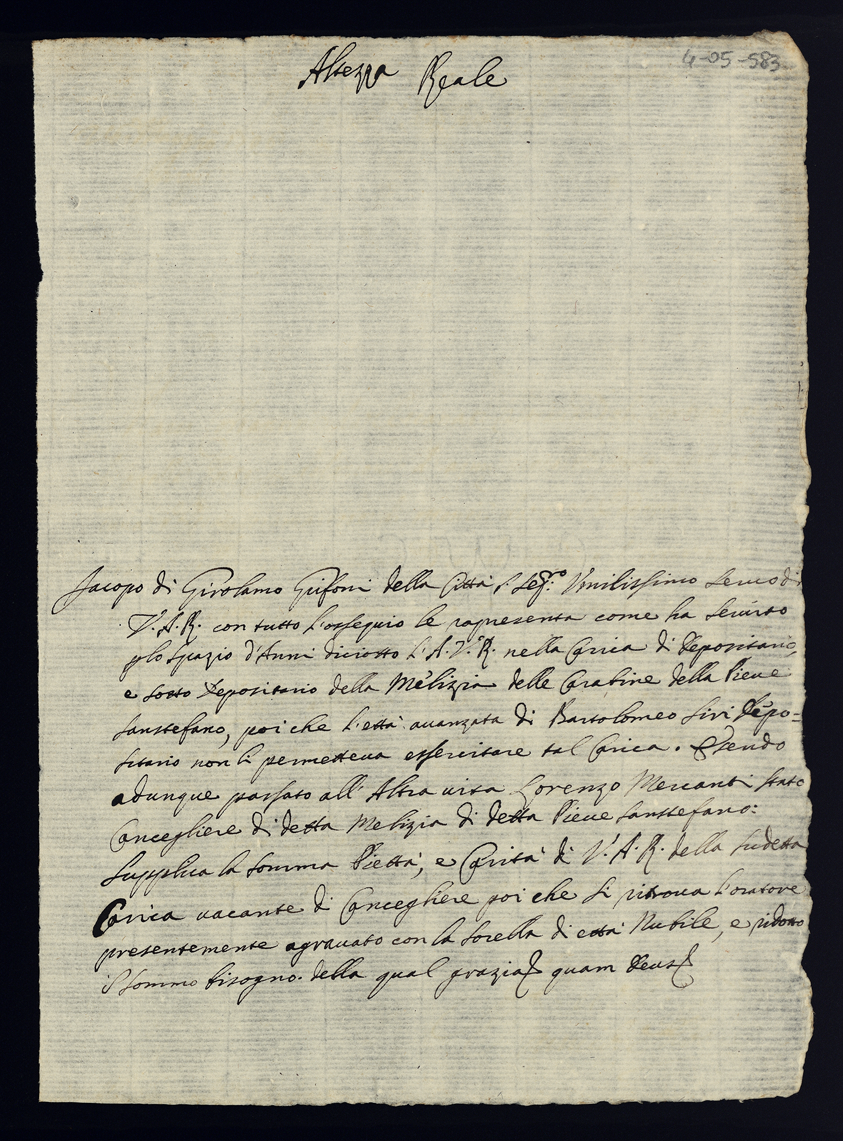 4-05-583
Altezza Reale
Jacopo di Girolamo Gifoni della Città S. Umilissimo Servo di
V.A.R. con tutto l'ossequio le rapresenta come ha servito
plo spazio d'Anni diciotto l'A.V.R. nella Carica di Depositario,
e sotto Depositario della Melizia delle Carabine della Pieve
Sanstefano, poi che l'ettà avanzata di Bartolomeo Sivi Depo=
sitario non li permetteva essercitare tal Carica. Essendo
adunque passato all'Altra vita Lorenzo Mercanti stato
Cancegliere di detta Melizia di detta Pieve Sanstefano:
Supplica la somma Piettà, e Carità di V.A.R. della sudetta
Carica vacante di Cancegliere poi che si ritrova l'oratore
presentemente agravato con la sorella di ettà Nubile, e ridotto
sommo bisogno. della qual grazia quam Deus